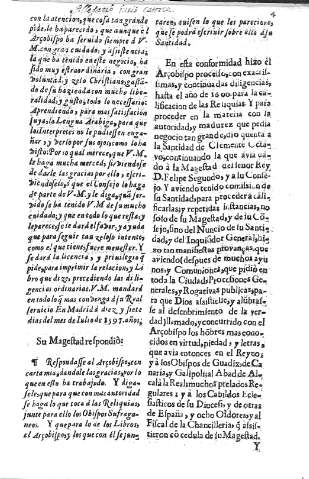 con la atencion, que cosa tan grande
pide. lo haureis hecho: y que aunque el
Arçobispo ha seruido siempre à V.
M. con gran cuidado, y asistencia,
la que ha tenido en este negocio, ha
sido muy extraordinaria, con gran
voluntad, y zelo Christiano, gastãdo
de su hazienda con mucha liberalidad
y gusto, todo lo necessario:
Aprendiendo, para mas satisfacion
suya, la Lengua Arabiga, para que
los Interpretes no le pudiessen engañar
y verlo por sus ojos, como lo ha
visto: Por lo qual merece, que V. M.
le haga mucha merced, siruiendose
de darle las gracias por ello, y escriuiendoselo,
si que el Consejo lo haga
de parte de V. M. y le diga, quã seruido
se ha tenido V. M. de su mucho
cuidado, y que en todo lo que resta, y
le pareciere se dará el fauor, y ayuda
que para seguir tan zeloso intento
como el que tiene, fuere menester. Y
se dará la licencia, y priuilegio q̃
pide, para imprimir la relacion y Libro
que dize, precediendo las diligencias
ordinarias. V. M. mandará
en todo lo q̃ mas conuenga à su Real
seruicio En Madrid à diez y siete
dias del mes de Iulio de 1597. años.
Su Magestad respondiò:
¶ Respondase al Arçobispo, con
carta mia, dandole las gracias, por lo
que en esto ha trabajado. Y digasele,
que para que con mas autoridad
se haga lo que toca à las Reliquias,
junte para ello los Obispos Sufraganeos.
Y que para lo de los Libros,
el Arçobispo, y los que con èl se juntaren,
auisen lo que les pareciere,
que se podrá escriuir sobre ello à su
Santidad.
En esta conformidad hizo èl
Arçobispo processo, con exactissimas,
y continuadas diligencias,
hasta el año de 1600. para la calificacion
de las Reliquias. Y para
proceder en la materia con la
autoridad, y madurez que pedia
negocio tan grande, dio quenta a
la Santidad de Clemente Octauo,
continuando la que auia dado
à la Magestad del señor Rey
D. Felipe Segundo, y a su Consejo.
Y auiendo tenido comission de
su Santidad, para proceder à calificarlas,
y repetidas instancias, no
solo de su Magestad, y de su Cõsejo,
sino del Nuncio de su Santidad,
y del Inquisidor General, hizo
tan manifiestas prouanças, que
auiendo (despues de muchos ayunos,
y Comuniones, que pidiò en
toda la Ciudad) Processiones Generales,
y Rogatiuas publicas, para
que Dios assistiesse, y alũbrasse
al descubrimiento de la verdad)
llamado, y concurrido con el
Arçobispo los hõbres mas conocidos
en virtud, piedad, y letras,
que auia entonces en el Reyno;
y à los Obispos de Guadix, de Canaria,
y Galipoli, al Abad de Alcalà
la Real, muchos prelados Regulares;
y à los Cabildos Eclesiasticos
de su Diocesi, y de otras
de España, y ocho Oidores, y al
Fiscal de la Chancilleria, q̃ assistieron
cõ cedula de su Magestad.
Y